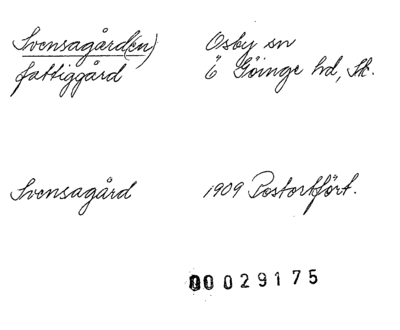 Svensagård(en) Osby sn
fattiggård Ö Göinge hd, Sk.
Svensagård 1909 Postortsfört.
00029175